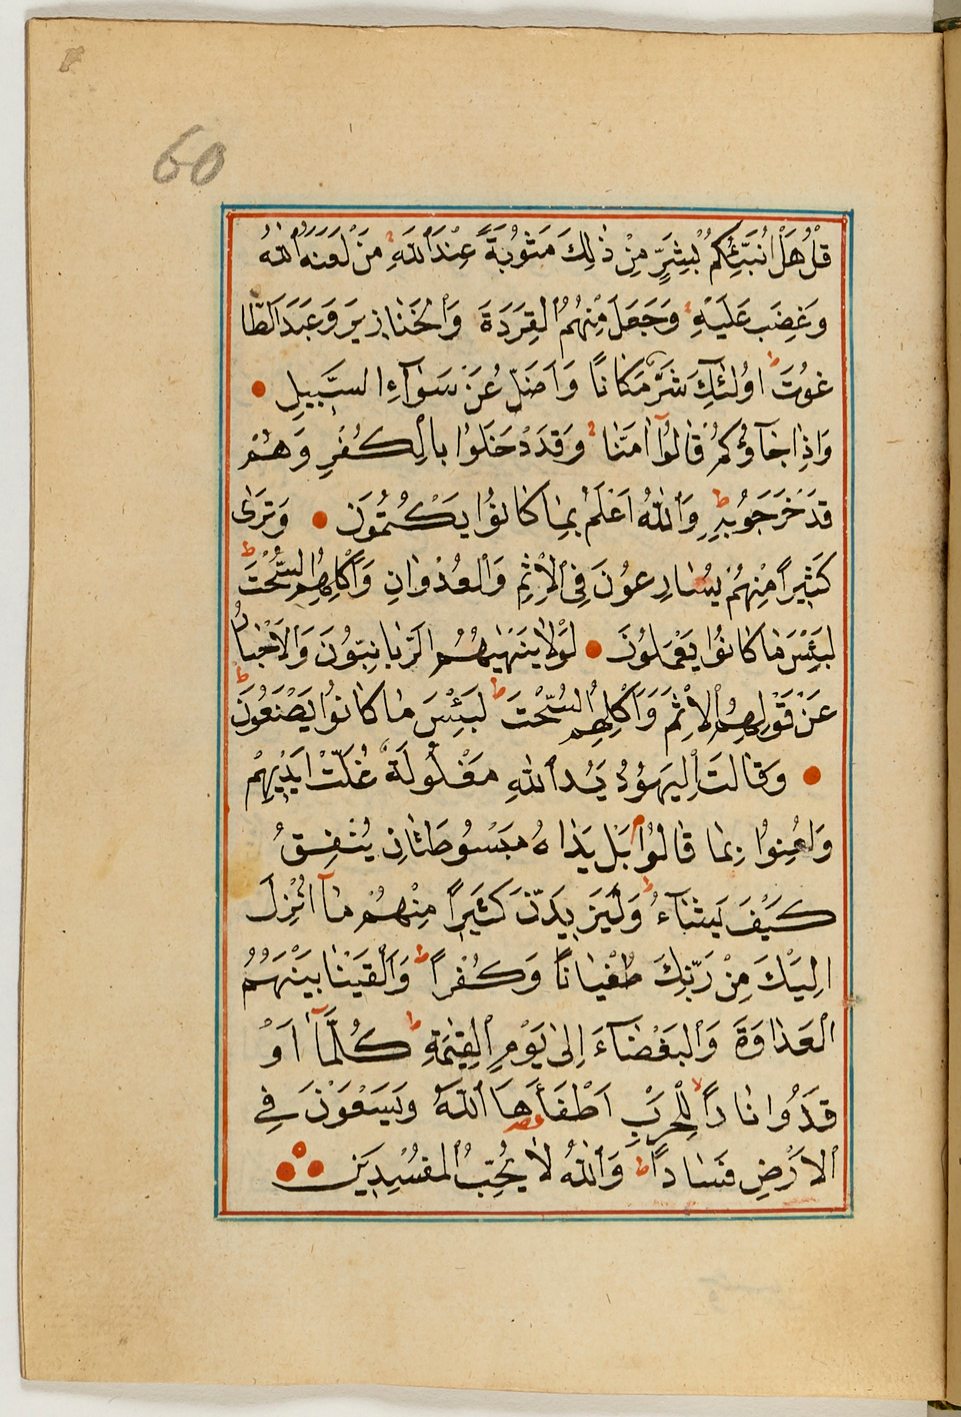 60
قُلْ هَلْ اُنَبِّئُكُمْ بِشَرٍّ مِنْ ذٰلِكَ مَثُوبَةً عِنْدَ اللّٰهِ مَنْ لَعَنَهُ اللّٰهُ
وَغَضِبَ عَلَيْهِ وَجَعَلَ مِنْهُمُ الْقِرَدَةَ وَالْخَنَازِيرَ وَعَبَدَ الطَّا
غُوتَ ط اُولٰئِكَ شَرٌّ مَكَانًا وَاَضَلُّ عَنْ سَوَاءِ السَّبِيلِ
وَاِذَا جَاؤُكُمْ قَالُوا اٰمَنَّا وَقَدْ دَخَلُوا بِالْكُفْرِ وَهُمْ
قَدْ خَرَجُوا بِهِ ط وَاللّٰهُ اَعْلَمُ بِمَا كَانُوا يَكْتُمُونَ وَتَرٰى
كَثِيرًا مِنْهُمْ يُسَارِعُونَ فِي الْاِثْمِ وَالْعُدْوَانِ وَاَكْلِهِمُ السُّحْتَ ط
لَبِئْسَ مَا كَانُوا يَعْمَلُونَ لَوْلَا يَنْهٰيهُمُ الرَّبَّانِيُّونَ وَالْاَحْبَارُ
عَنْ قَوْلِهِمُ الْاِثْمَ وَاَكْلِهِمُ السُّحْتَ ط لَبِئْسَ مَا كَانُوا يَصْنَعُونَ ط
وَقَالَتِ الْيَهُودُ يَدُ اللّٰهِ مَغْلُولَةٌ غُلَّتْ اَيْدِيهِمْ
وَلُعِنُوا بِمَا قَالُوا م بَلْ يَدَاهُ مَبْسُوطَتَانِ يُنْفِقُ
كَيْفَ يَشَاءُ ط وَلَيَزِيدَنَّ كَثِيرًا مِنْهُمْ مَا اُنْزِلَ
اِلَيْكَ مِنْ رَبِّكَ طُغْيَانًا وَكُفْرًا ط وَاَلْقَيْنَا بَيْنَهُمُ
الْعَدَاوَةَ وَالْبَغْضَاءَ اِلٰى يَوْمِ الْقِيٰمَةِ ط كُلَّمَا اَوْ
قَدُوا نَارًا لِلْحَرْبِ اَطْفَأَهَا اللّٰهُ وَيَسْعَوْنَ فِي
الْاَرْضِ فَسَادًا ط وَاللّٰهُ لَا يُحِبُّ الْمُفْسِدِينَ